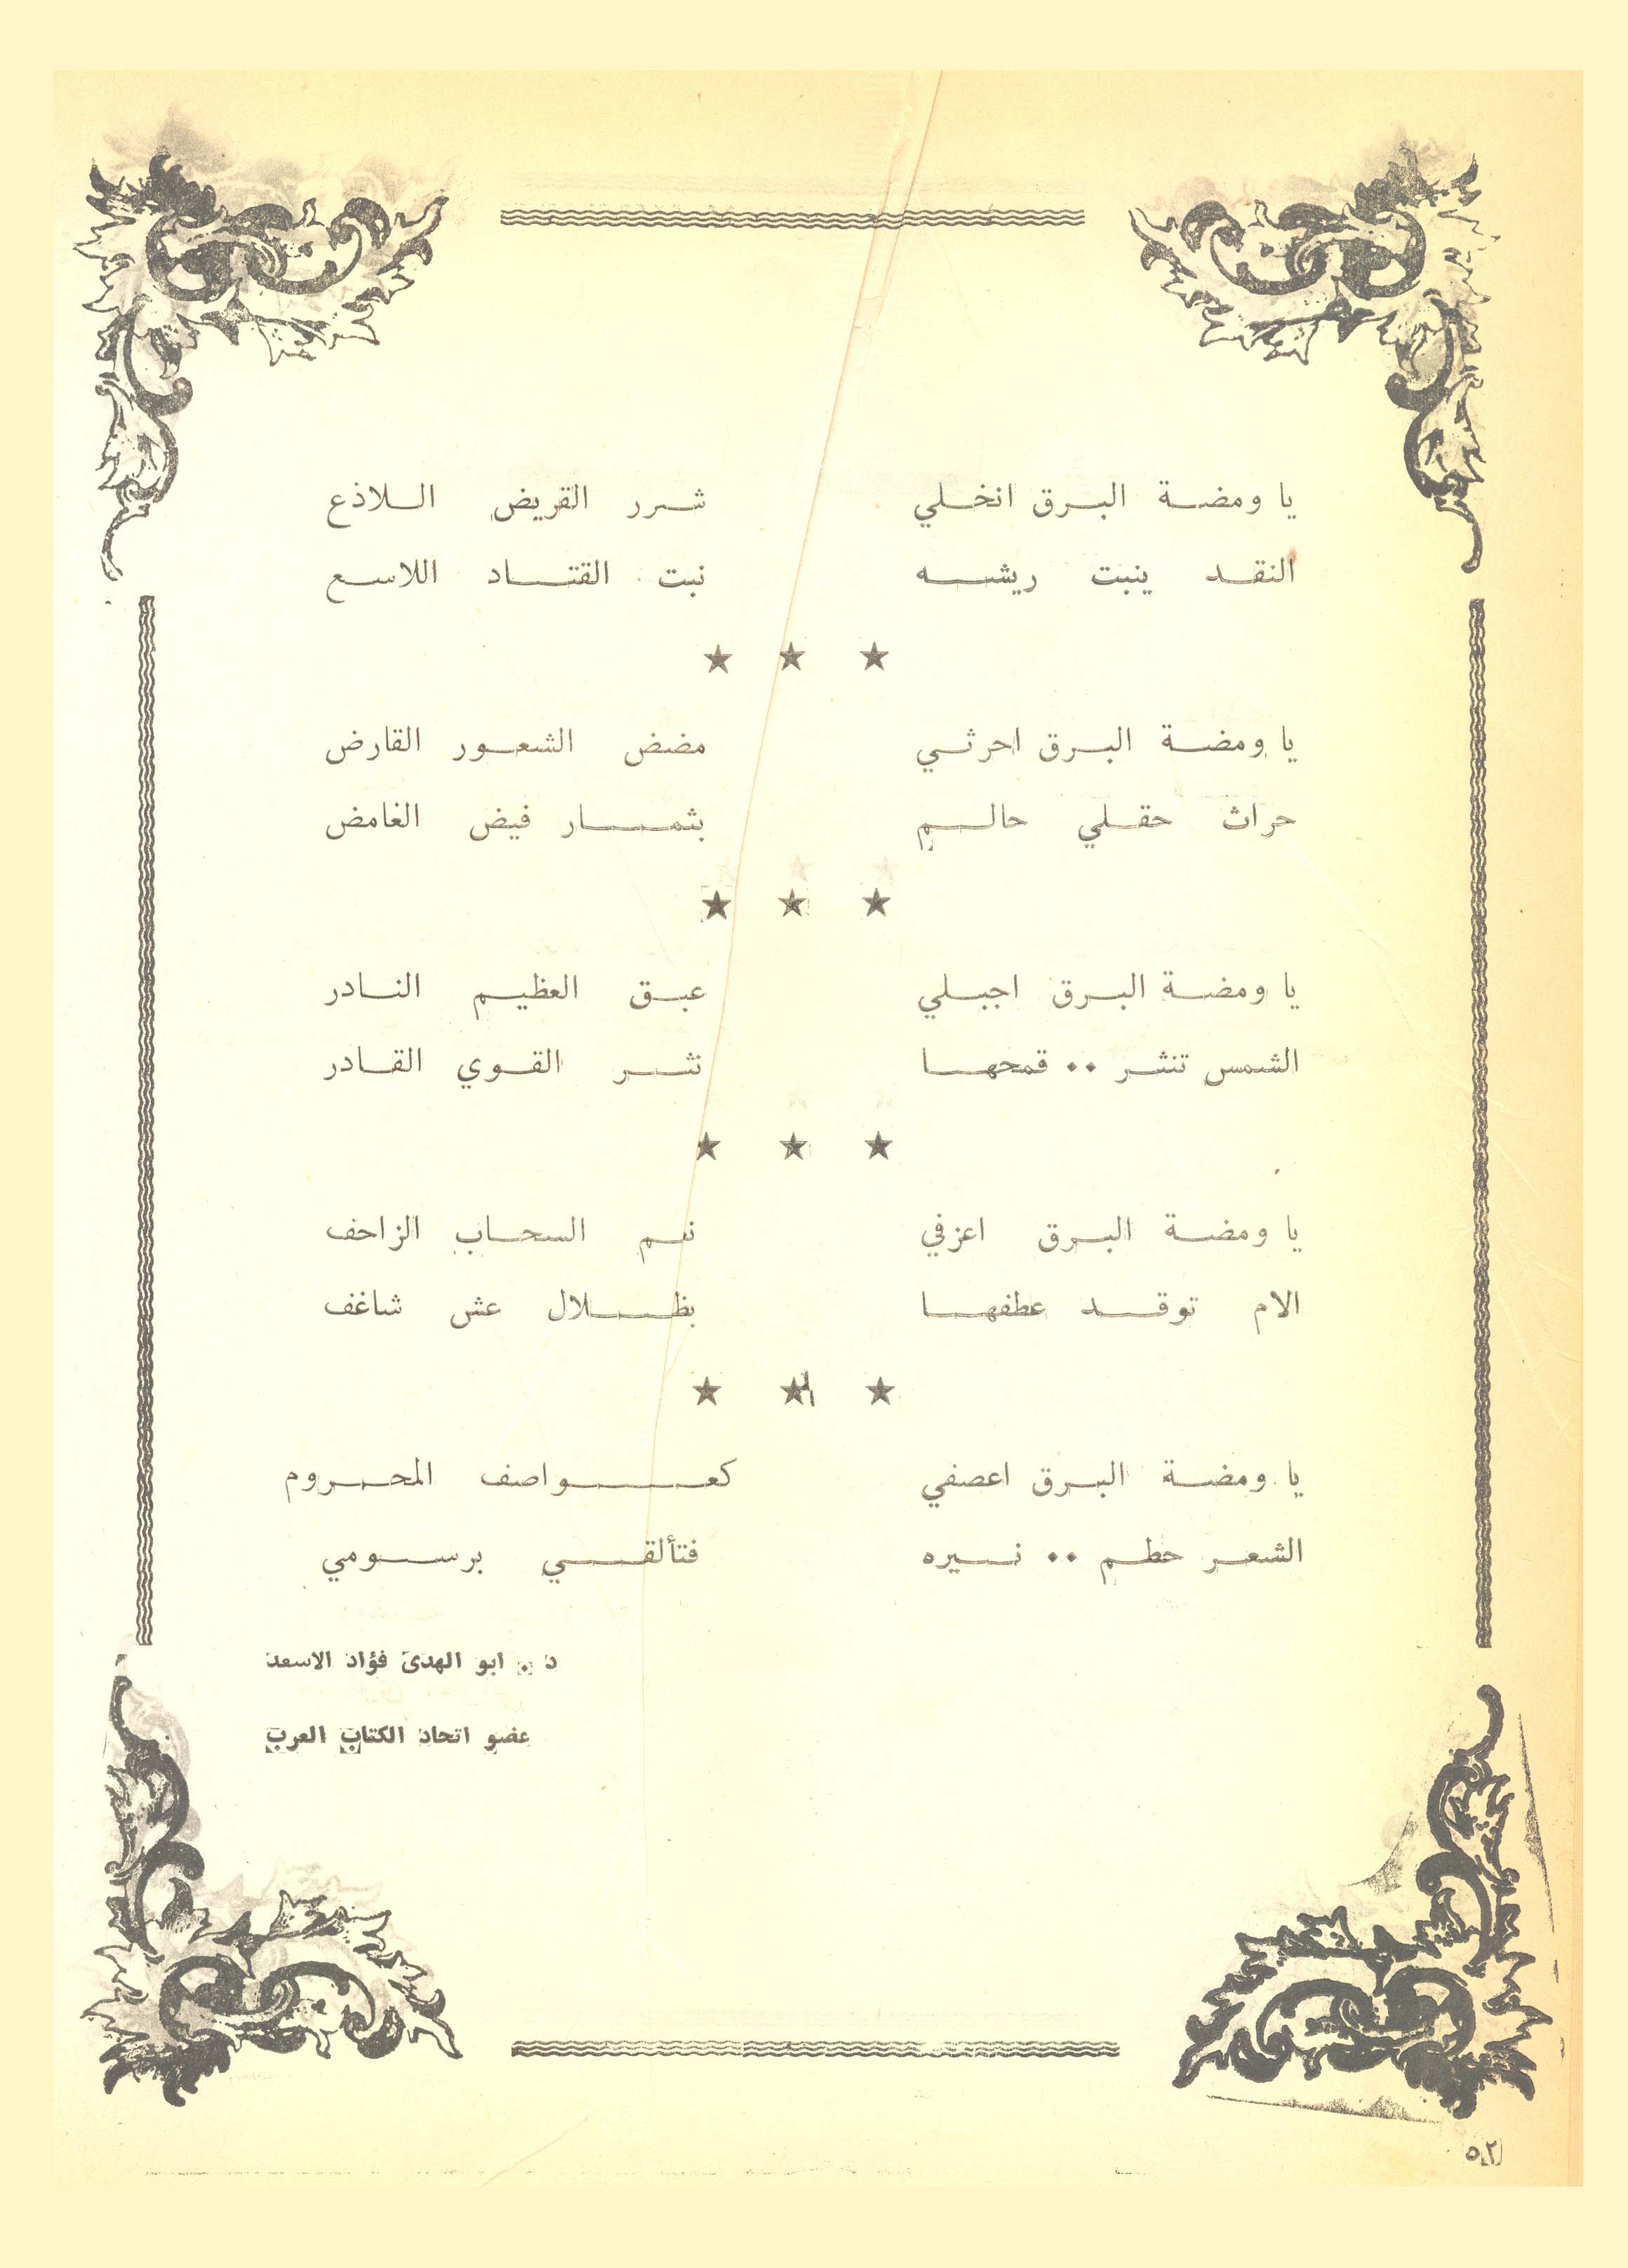 يا ومضة البرق انخلي شرر القريض اللاذع
النقد ينبت ريشه نبت القتاد اللاسع
★ ★ ★
يا ومضة البرق احرثي مضض الشعور القارض
حراث حقلي حالم بثمار فيض الغامض
★ ★ ★
يا ومضة البرق اجبلي عبق العظيم النادر
الشمس تنثر ٠٠ قمحها نثر القوي القادر
★ ★ ★
يا ومضة البرق اعزفي نغم السحاب الزاحف
الام توقد عطفها بظلال عش شاغف
★ ★ ★
يا ومضة البرق اعصفي كعواصف المحروم
الشعر حطم ٠٠ نيره فتألقي برسومي
د ٠ ابو الهدى فؤاد الاسعد
عضو اتحاد الكتاب العرب
٥٢